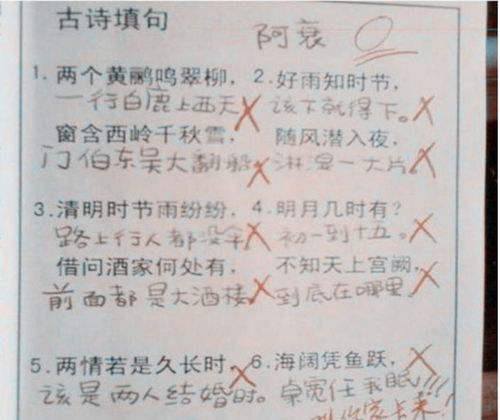 古诗填句
阿衰 0
1. 两个黄鹂鸣翠柳， 2. 好雨知时节，
一行白鹿上西天 该下就得下。
窗含西岭千秋雪， 随风潜入夜，
门伯东吴大翻船 淋湿一大片。
3. 清明时节雨纷纷， 4. 明月几时有？
路上行人都没伞 初一到十五。
借问酒家何处有， 不知天上宫阙，
前面都是大酒楼 到底在哪里
5. 两情若是久长时， 6. 海阔凭鱼跃，
该是两人结婚时。 桌宽任我眠!!!